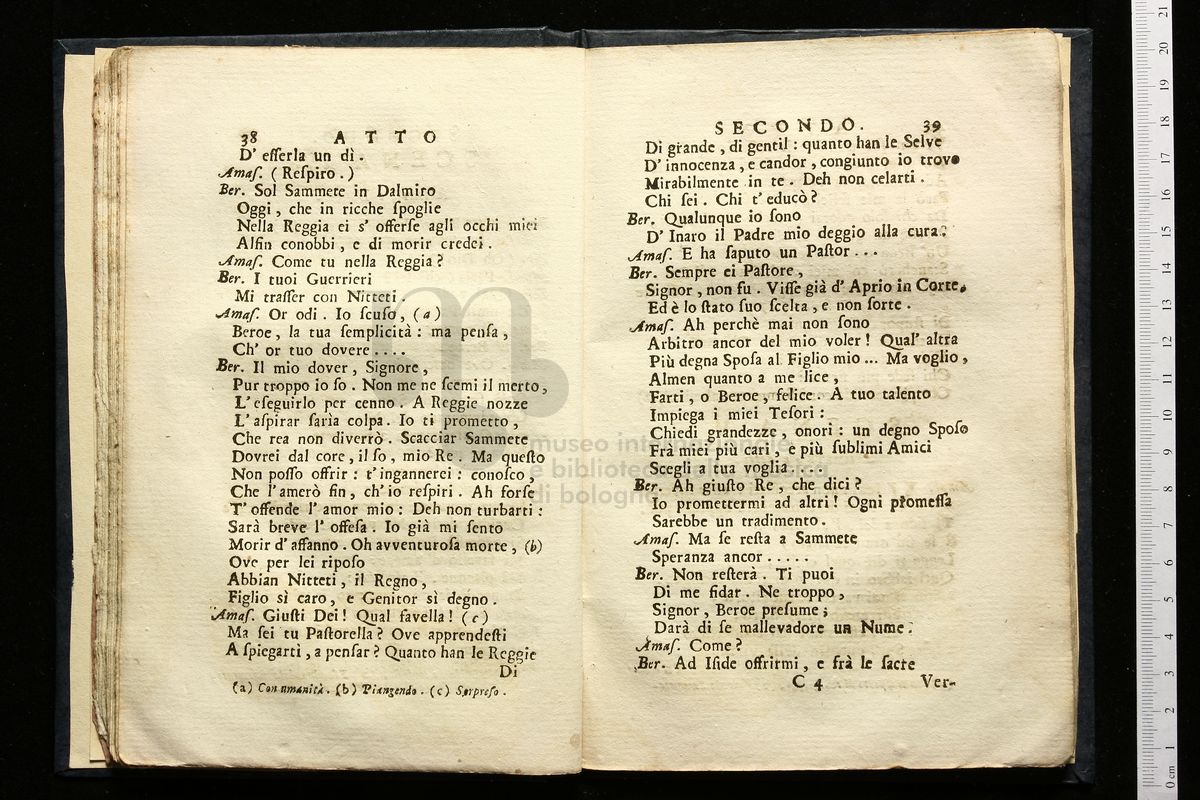 38 ATTO
D' eſſerla un dì.
Amaſ. (Reſpiro.)
Ber. Sol Sammete in Dalmiro
Oggi, che in ricche ſpoglie
Nella Reggia ei s' offerſe agli occhi miei
Alfin conobbi, e di morir credei.
Amaſ. Come tu nella Reggia?
Ber. I tuoi Guerrieri
Mi traſſer con Nitteti.
Amaſ. Or odi. Io ſcuſo, (a)
Beroe, la tua ſemplicità: ma penſa,
Ch' or tuo dovere....
Ber. Il mio dover, Signore,
Pur troppo io ſo. Non me ne ſcemi il merto,
L' eſeguirlo per cenno. A Reggie nozze
L' aſpirar ſarìa colpa. Io ti prometto,
Che rea non diverrò. Scacciar Sammete
Dovrei dal core, il ſo, mio Re. Ma queſto
Non poſſo offrir: t' ingannerei: conoſco,
Che l' amerò fin, ch' io reſpiri. Ah forſe
T' offende l' amor mio: Deh non turbarti:
Sarà breve l' offeſa. Io già mi ſento
Morir d' affanno. Oh avventuroſa morte, (b)
Ove per lei ripoſo
Abbian Nitteti, il Regno,
Figlio sì caro, e Genitor sì degno.
Amaſ. Giuſti Dei! Qual favella! (c)
Ma ſei tu Paſtorella? Ove apprendeſti
A ſpiegarti, a penſar? Quanto han le Reggie
Di
(a) Con umanità. (b) Piangendo. (c) Sorpreſo.
SECONDO. 39
Di grande, di gentil: quanto han le Selve
D' innocenza, e candor, congiunto io trovo
Mirabilmente in te. Deh non celarti.
Chi ſei. Chi t' educò?
Ber. Qualunque io ſono
D' Inaro il Padre mio deggio alla cura.
Amaſ. E ha ſaputo un Paſtor...
Ber. Sempre ei Paſtore,
Signor, non fu. Viſſe già d' Aprio in Corte,
Ed è lo ſtato ſuo ſcelta, e non ſorte.
Amaſ. Ah perchè mai non ſono
Arbitro ancor del mio voler! Qual' altra
Più degna Spoſa al Figlio mio... Ma voglio,
Almen quanto a me lice,
Farti, o Beroe, felice. A tuo talento
Impiega i miei Teſori:
Chiedi grandezze, onori: un degno Spoſo
Frà miei più cari, e più ſublimi Amici
Scegli a tua voglia....
Ber. Ah giuſto Re, che dici?
Io promettermi ad altri! Ogni promeſſa
Sarebbe un tradimento.
Amaſ. Ma ſe reſta a Sammete
Speranza ancor.....
Ber. Non reſterà. Ti puoi
Di me fidar. Ne troppo,
Signor, Beroe preſume;
Darà di ſe mallevadore un Nume.
Amaſ. Come?
Ber. Ad Iſide offrirmi, e frà le ſacre
C 4 Ver-
museo internazionale
e biblioteca della musica
di bologna
0 cm 1 2 3 4 5 6 7 8 9 10 11 12 13 14 15 16 17 18 19 20 21